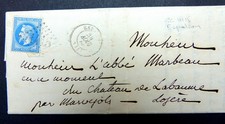 Monsieur
Monsieur L'abbé Marbeau
en ce moment
au Château de Labaume
par Marvejols
Lozère